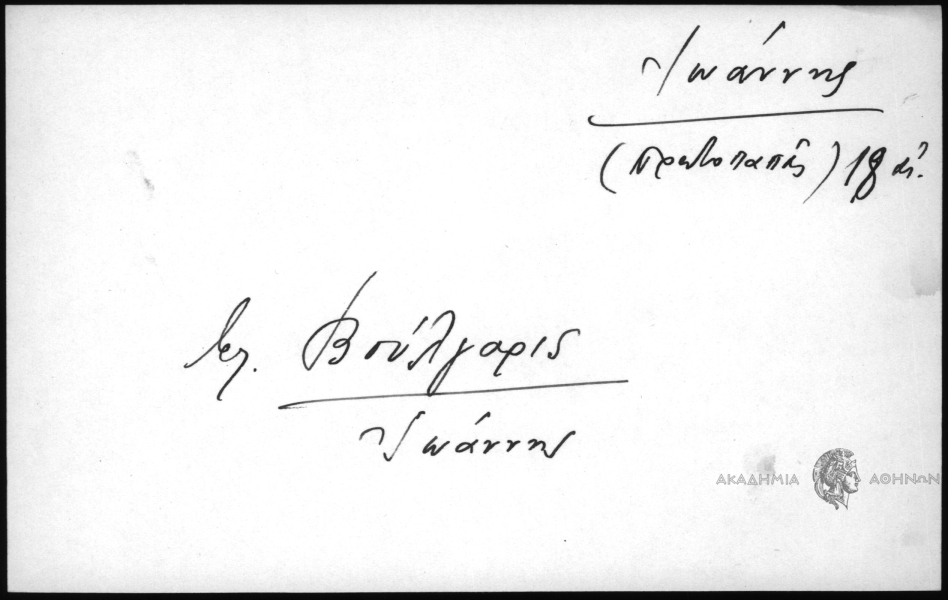 Ἰωάννης
(πρωτοπαπᾶς) 18 αἰ.
βλ. Βούλγαρις
Ἰωάννης
ΑΚΑΔΗΜΙΑ ΑΘΗΝΩΝ